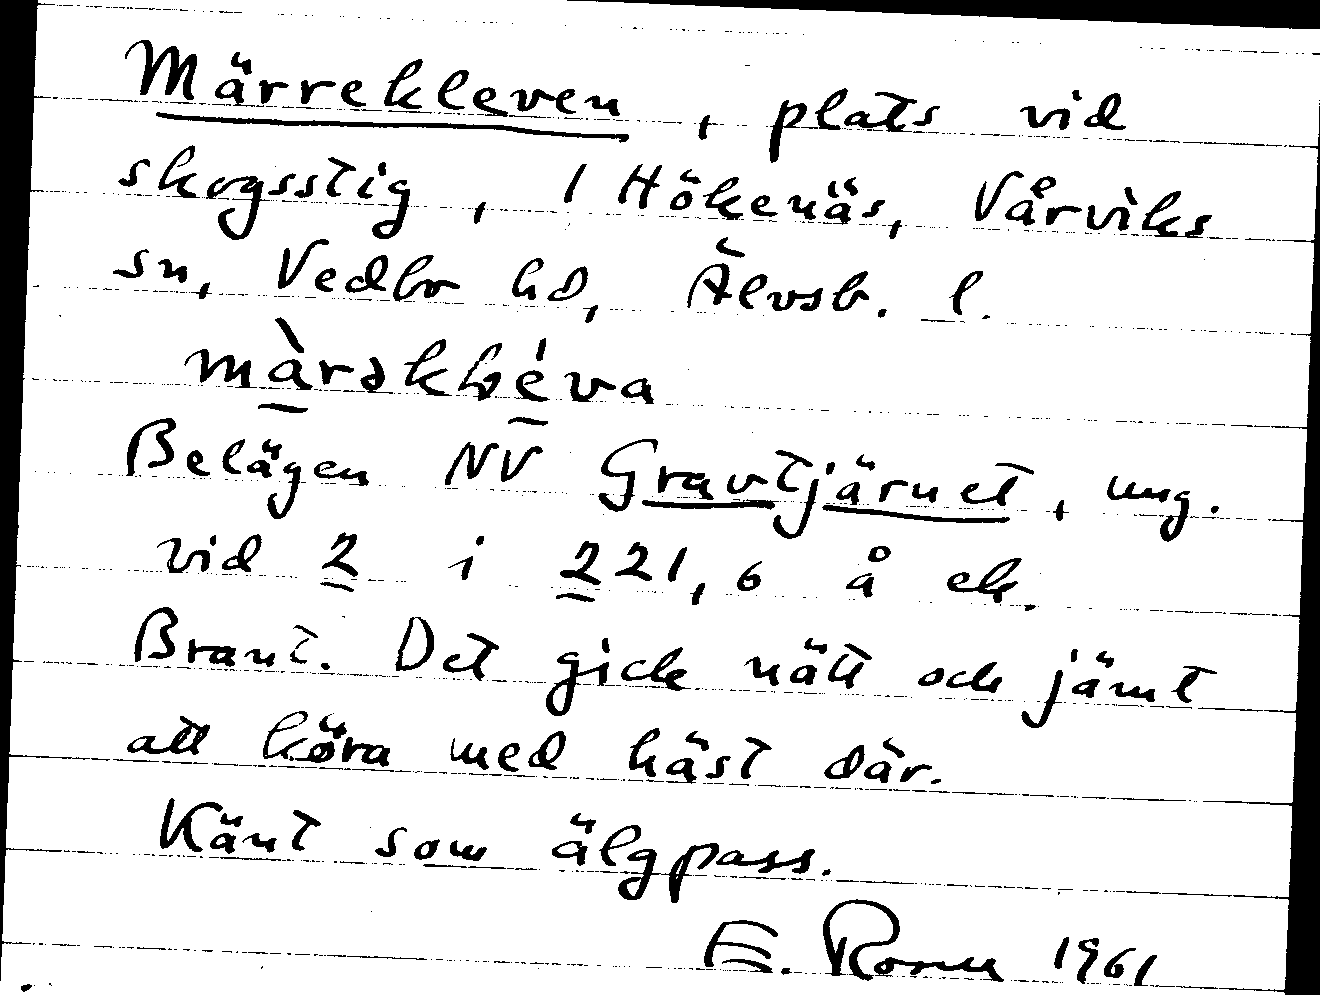 Märrekleven, plats vid
skogsstig, 1 Hökenäs, Vårviks
sn, Vedbo hd, Älvsb. l.
Belägen NV Gravtjärnet, ung.
vid 2 i 221,6 å ek.
Brant. Det gick nätt och jämt
att köra med häst där.
Känt som älgpass.
E. 1961